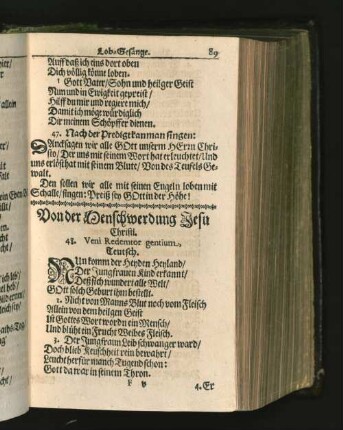 Lob-Gesänge. 89
Auff daß ich eins dort oben
Dich völlig könnt loben.
† Gott Vater/ Sohn und heilger Geist
Nun und in Ewigkeit gepreist/
Hilff du mir und regiert mich/
Damit ich möge würdiglich
Dir meinem Schöpffer dienen.
47. Nach der Predigt kan man singen:
DAncksagen wir alle GOtt unserm HErrn Chri-
sto/ Der uns mit seinem Wort hat erleuchtet/ Und
uns erlöst hat mit seinem Blute/ Von des Teufels Ge-
walt.
Den sollen wir alle mit seinen Engeln loben mit
Schalle/ singen: Preiß sey GOtt in der Höhe!
Von der Menschwerdung Jesu
Christi.
48. Veni Redemtor gentium.,
Teutsch.
NUn komm der Heyden Heyland/
Der Jungfrauen Kind erkannt/
Deß sich wundert alle Welt/
GOtt solch Geburt ihm bestellt.
2. Nicht von Manns Blut noch vom Fleisch
Allein von dem heilgen Geist
Ist Gottes Wort wordn ein Mensch/
Und blüht ein Frucht Weibes Fleisch.
3. Der Jungfraun Leib schwanger ward/
Doch blieb Keuschheit rein bewahrt/
Leucht herfür manch Tugend schon:
Gott da war in seinem Thron.
4. Er